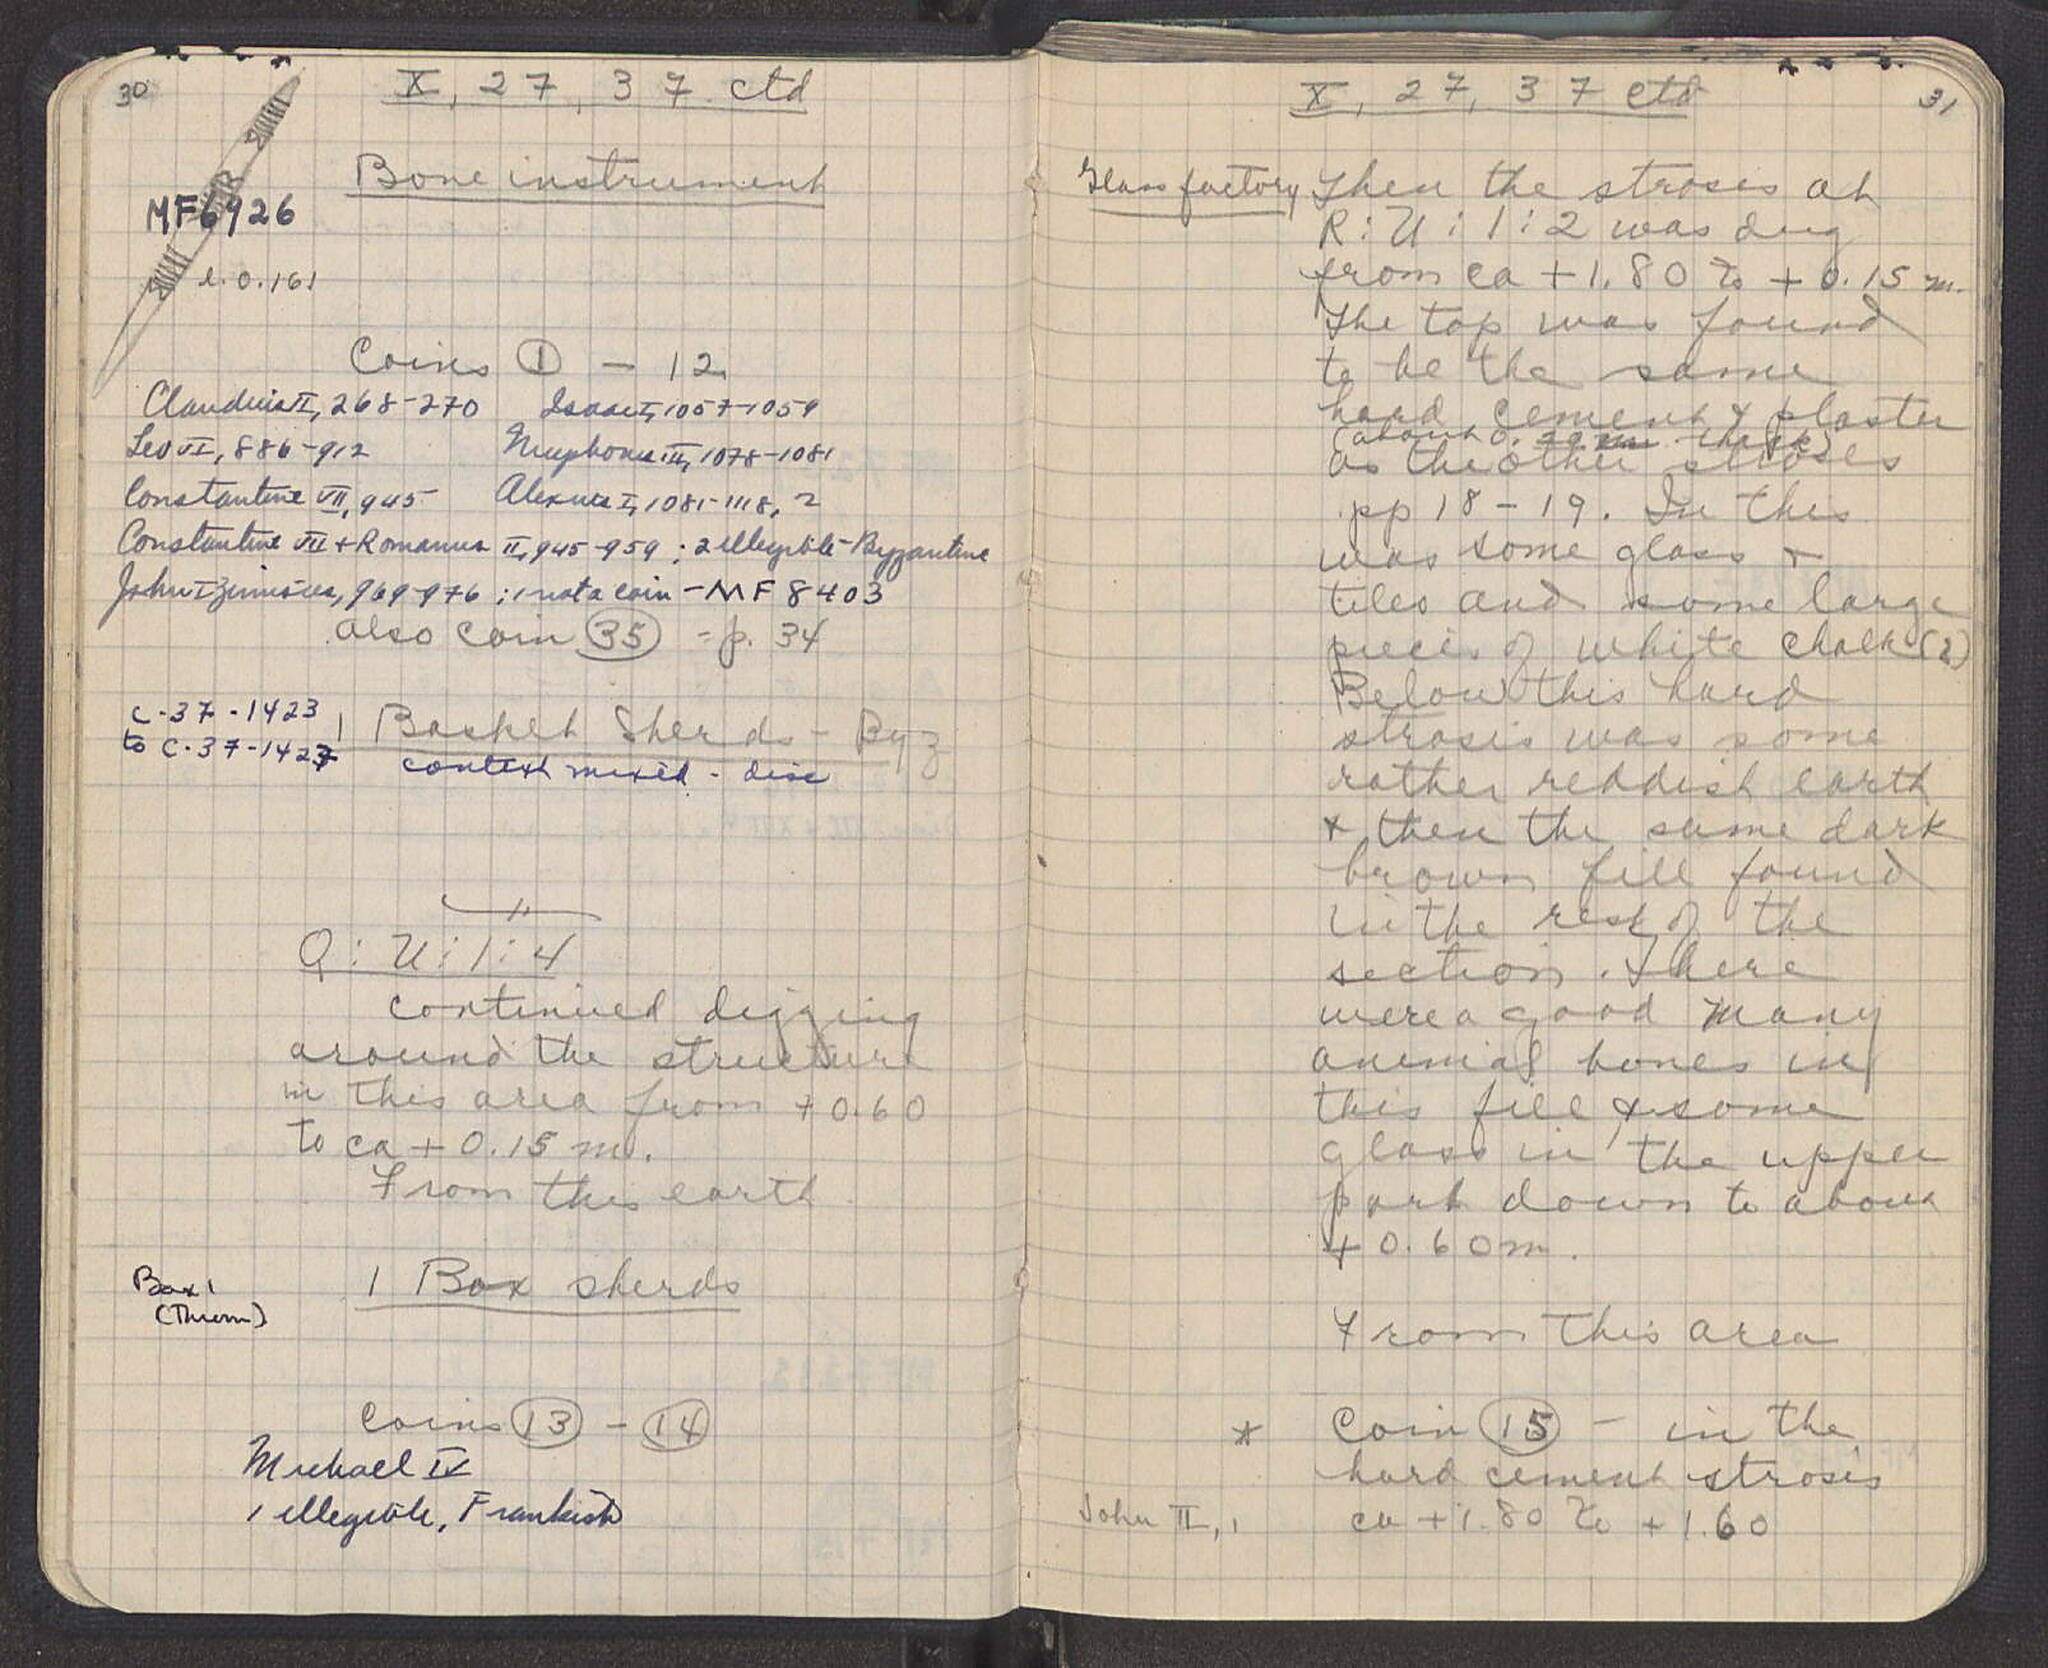 30
X, 27, 37 ctd
Bone instrument
MF6926
l. 0.161
Coins ① - 12
Claudius II, 268-270 Isaac I, 1057-1059
Leo VI, 886-912 Nicephorus III, 1078-1081
Constantine VII, 945 Alexius I, 1081-1118, 2
Constantine VII + Romanus II, 945-959 ; 2 illegible-Byzantine
John I Zimisces, 969-976 ; 1 not a coin - MF 8403
also coin 35 = p. 34
C-37-1423
to C-37-1427
1 Basket Sherds - Byz
context mixed - disc
Q : U : 1 : 4
continued digging
around the structure
in this area from +0.60
to ca +0.15 m.
From this earth
Box 1
(Thrown)
1 Box sherds
Coins 13 - 14
Michael IV
1 illegible, Frankish
X, 27, 37 ctd
31
Glass factory
Then the strosis at
R : U : 1 : 2 was dug
from ca +1.80 to +0.15 m.
The top was found
to be the same
hard cement & plaster
(about 0. thick)
as the other stroses
pp 18-19. In this
was some glass +
tiles and some large
pieces of white chalk (2)
Below this hard
strosis was some
rather reddish earth
+ then the same dark
brown fill found
in the rest of the
section. There
were a good many
animal bones in
this fill & some
glass in the upper
part down to about
+0.60m.
From this area
* Coin 15 - in the
hard cement strosis
John II, 1
ca +1.80 to +1.60